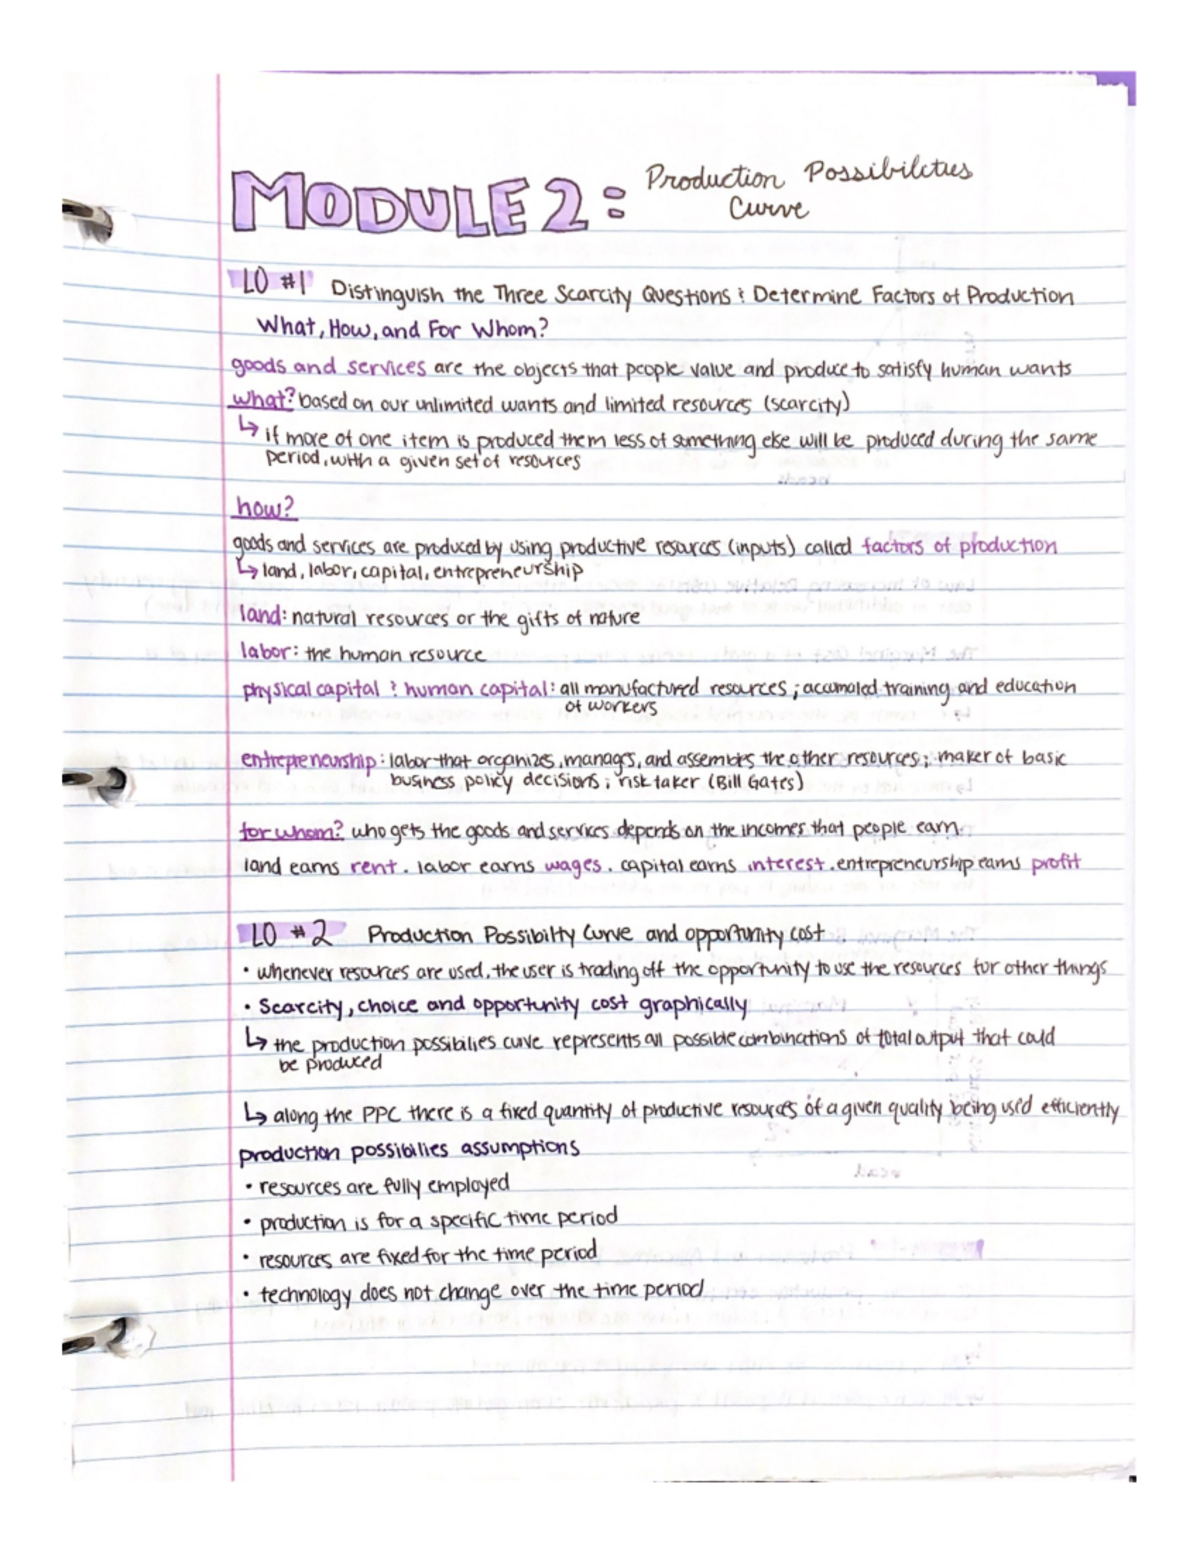 MODULE 2: Production Possibilities
Curve
LO #1 Distinguish the Three Scarcity Questions & Determine Factors of Production
What, How, and For Whom?
goods and services are the objects that people value and produce to satisfy human wants
what? based on our unlimited wants and limited resources (scarcity)
↳ if more of one item is produced them less of something else will be produced during the same
period, with a given set of resources
how?
goods and services are produced by using productive resources (inputs) called factors of production
↳ land, labor, capital, entrepreneurship
land: natural resources or the gifts of nature
labor: the human resource
physical capital & human capital: all manufactured resources; accumaled training and education
of workers
entrepreneurship: labor that organizes, manages, and assembles the other resources; maker of basic
business policy decisions; risk taker (Bill Gates)
for whom? who gets the goods and services depends on the incomes that people earn.
land earns rent. labor earns wages. capital earns interest. entrepreneurship earns profit
LO #2 Production Possibilty Curve and opportunity cost
• whenever resources are used, the user is trading off the opportunity to use the resources for other things
• Scarcity, choice and opportunity cost graphically
↳ the production possibilies curve represents all possible combinations of total output that could
be produced
↳ along the PPC there is a fixed quantity of productive resources of a given quality being used efficiently
production possibilies assumptions
• resources are fully employed
• production is for a specific time period
• resources are fixed for the time period
• technology does not change over the time period